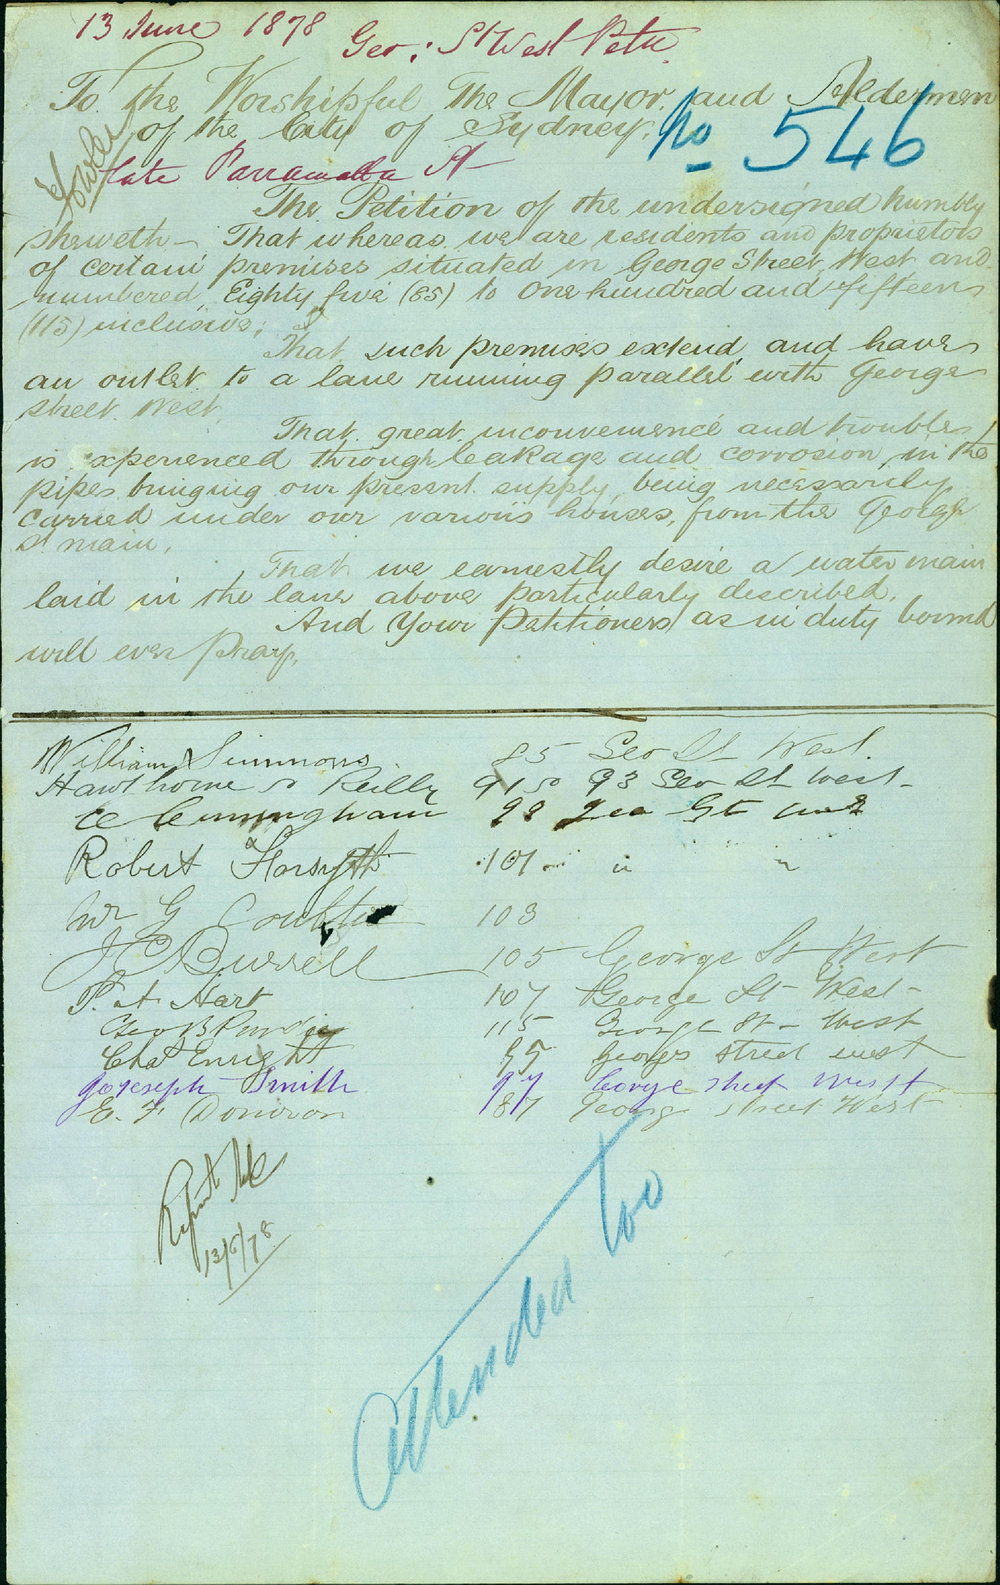 13 June 1878 Geo: St West Petn
To the Worshipful The Mayor and Aldermen
of the City of Sydney.
No 546
Fowler
late Parramatta St
The Petition of the undersigned humbly
sheweth - That whereas we are residents and proprietors
of certain premises situated in George Street West and
numbered Eighty five (85) to One hundred and fifteen
(115) inclusive;
That such premises extend and have
an outlet to a lane running parallel with George
Street West.
That great inconvenience and trouble
is experienced through leakage and corrosion in the
pipes bringing our present supply, being necessarily
carried under our various houses, from the George
St main.
That we earnestly desire a water main
laid in the lane above particularly described.
And Your Petitioners as in duty bound
will ever pray.
William Simmons 85 Geo St West
Hawthorne & Reilly 91 & 93 Geo St West -
C Cunningham 99 Geo St West
Robert Forsyth 101 " "
Wm G Coulter 103
J C Burrell 105 George St West
P. A. Hart 107 George St West -
Geo B Purdie 115 George St - West
Chas Enright 95 Georges street west
Joseph Smith 97 George Street West
E. F Donovan 87 George Street West
Report
13/6/78
Attended too